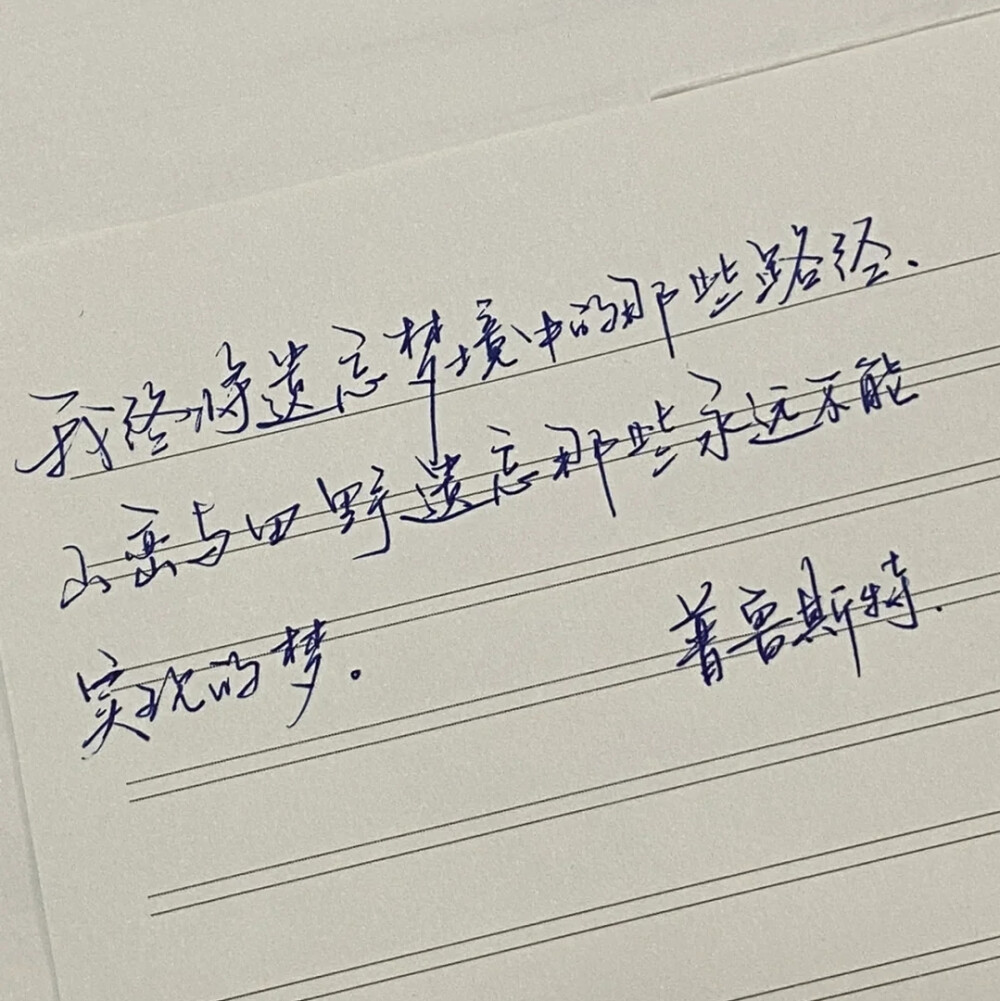 我终将遗忘梦境中的那些路径、
山峦与田野遗忘那些永远不能
实现的梦。 普鲁斯特.